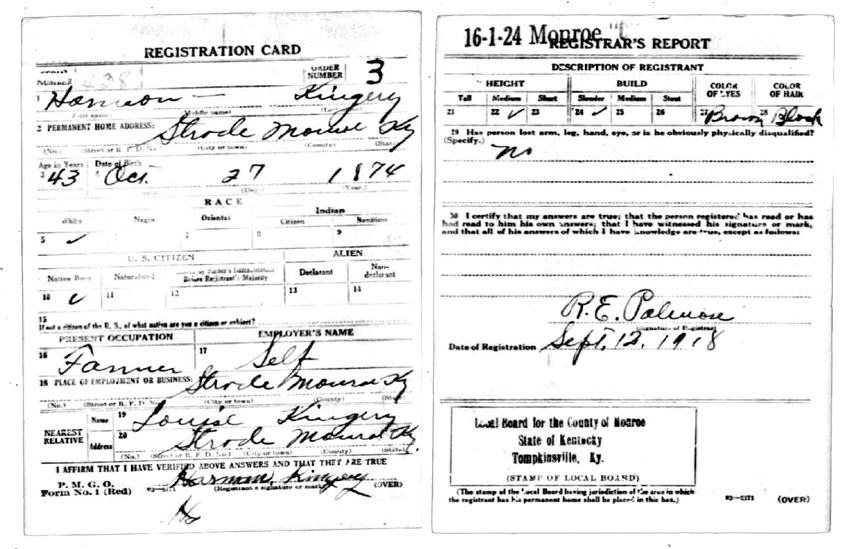 REGISTRATION CARD
SERIAL NUMBER 438
ORDER NUMBER 3
1 Harmon — Kingery
(First name) (Middle name)
2 PERMANENT HOME ADDRESS: Strode Monroe Ky
(No.) (Street or R. F. D. No.) (City or town) (County) (State)
Age in Years Date of Birth
3 43 4 Oct. 27 1874
(Day.) (Year.)
RACE
White Negro Oriental Indian
Citizen Noncitizen
5 ✓ 7 8 9
U. S. CITIZEN ALIEN
Native Born Naturalized Citizen by Father's Naturalization Before Registrant's Majority Declarant Non-declarant
10 ✓ 11 12 13 14
15
If not a citizen of the U. S., of what nation are you a citizen or subject?
PRESENT OCCUPATION EMPLOYER'S NAME
16 Farmer 17 Self
18 PLACE OF EMPLOYMENT OR BUSINESS: Strode Monroe Ky
(No.) (Street or R. F. D. No.) (City or town) (County) (State)
NEAREST RELATIVE Name 19 Louise Kingery
Address 20 Strode Monroe Ky.
(No.) (Street or R. F. D. No.) (City or town) (County) (State)
I AFFIRM THAT I HAVE VERIFIED ABOVE ANSWERS AND THAT THEY ARE TRUE
P. M. G. O.
Form No. 1 (Red) 03—6171 Harman Kingery
(Registrant's signature or mark) (OVER)
16-1-24 Monroe "C"
REGISTRAR'S REPORT
DESCRIPTION OF REGISTRANT
HEIGHT BUILD COLOR OF EYES COLOR OF HAIR
Tall Medium Short Slender Medium Stout
21 22 ✓ 23 24 ✓ 25 26 27 Brown 28 Black
29 Has person lost arm, leg, hand, eye, or is he obviously physically disqualified?
(Specify.) no
30 I certify that my answers are true; that the person registered has read or has
had read to him his own answers; that I have witnessed his signature or mark,
and that all of his answers of which I have knowledge are true, except as follows:
R. E. Palmore
(Signature of Registrar)
Date of Registration Sept. 12, 1918
Local Board for the County of Monroe
State of Kentucky
Tompkinsville, Ky.
(STAMP OF LOCAL BOARD)
(The stamp of the Local Board having jurisdiction of the area in which
the registrant has his permanent home shall be placed in this box.)
03—6171 (OVER)